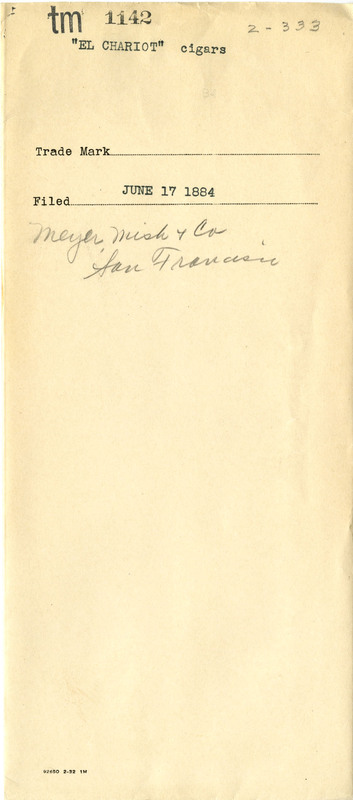 tm 1142 2-333
"EL CHARIOT" cigars
Trade Mark
Filed JUNE 17 1884
Meyer, Mish & Co
San Francisco
92450 2-32 1M